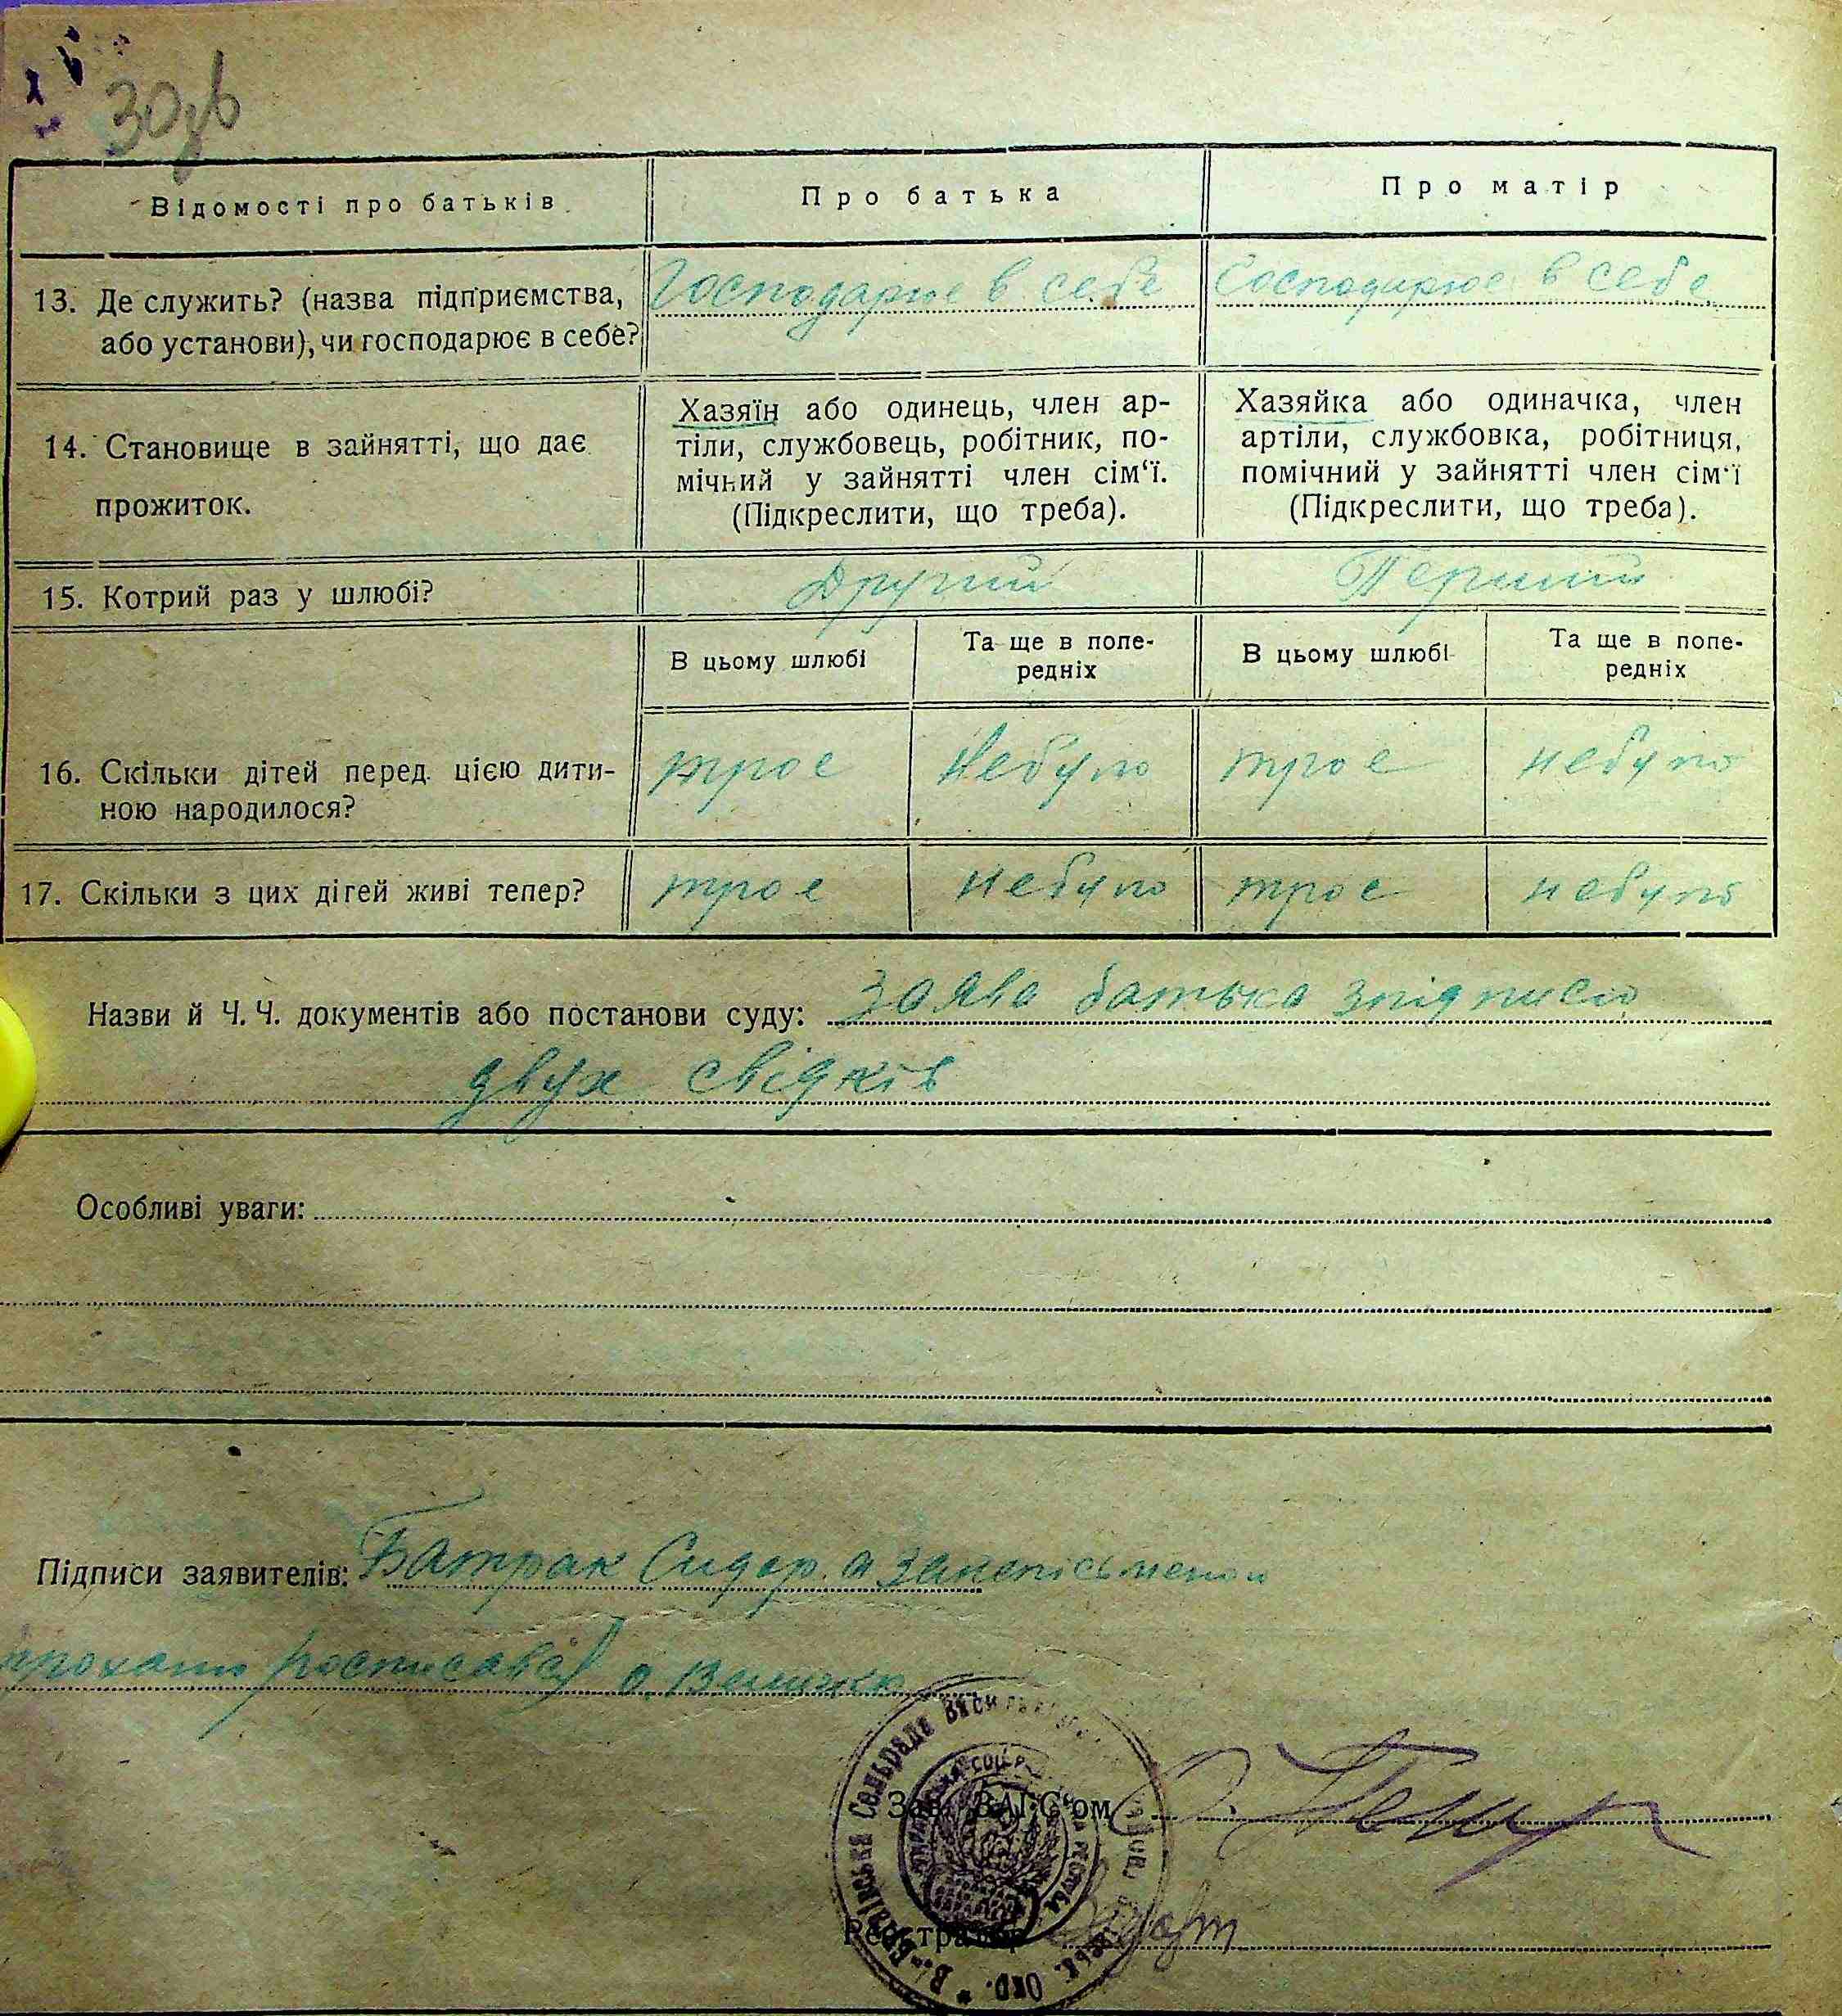 30зв
Відомості про батьків
Про батька
Про матір
13. Де служить? (назва підприємства,
або установи), чи господарює в себе?
Господарює в себе
Господарює в себе
14. Становище в зайнятті, що дає
прожиток.
Хазяїн або одинець, член ар-
тіли, службовець, робітник, по-
мічний у зайнятті член сім‘ї.
(Підкреслити, що треба).
Хазяйка або одиначка, член
артіли, службовка, робітниця,
помічний у зайнятті член сім‘ї
(Підкреслити, що треба).
15. Котрий раз у шлюбі?
Другий
Перший
В цьому шлюбі
Та ще в попе-
редніх
В цьому шлюбі
Та ще в попе-
редніх
16. Скільки дітей перед цією дити-
ною народилося?
троє
небуло
троє
небуло
17. Скільки з цих дітей живі тепер?
троє
небуло
троє
небуло
Назви й Ч. Ч. документів або постанови суду: заява батька зпідписю
двух свідків
Особливі уваги:
Підписи заявителів: Батрак Сидор а за
росписався
Зав. ЗАГС‘ом
Реєстратор